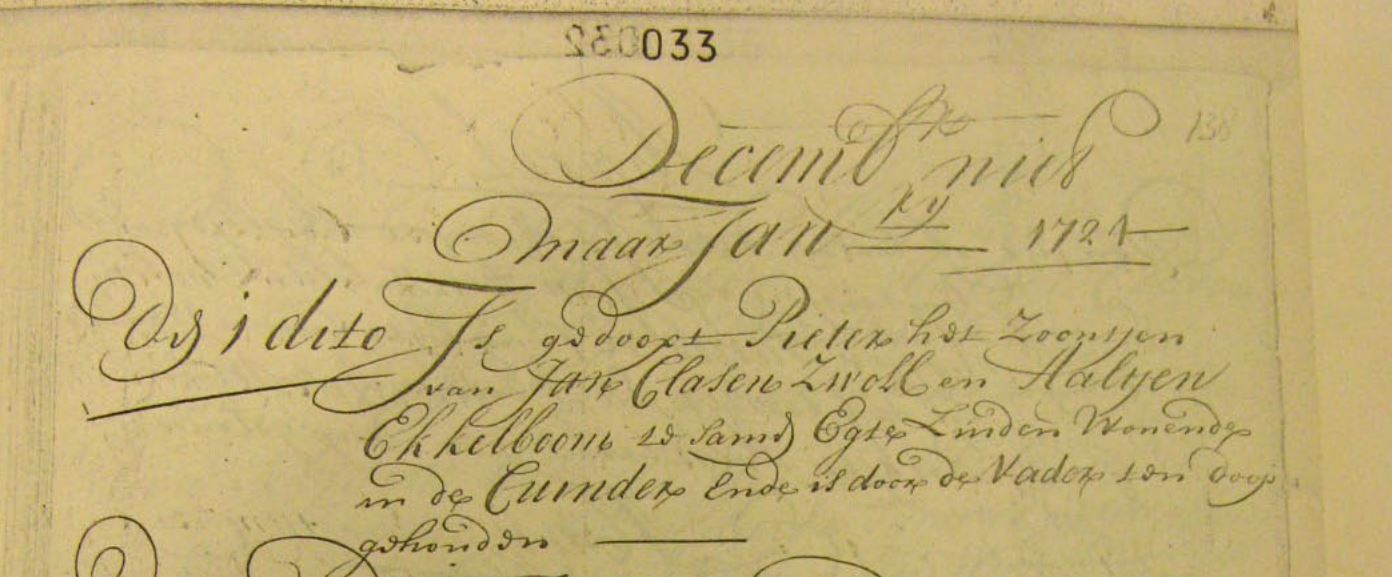 033
138
Decemb niet
maar Jan ry 1721
Dy 1 dito Is gedoopt Pieter het Zoontjen
van Jan Clasen Zwoll en Aaltjen
Ekkelboom te samd Egte Linden Wonende
in de Cuinder Ende is door de Vader ten doop
gehouden